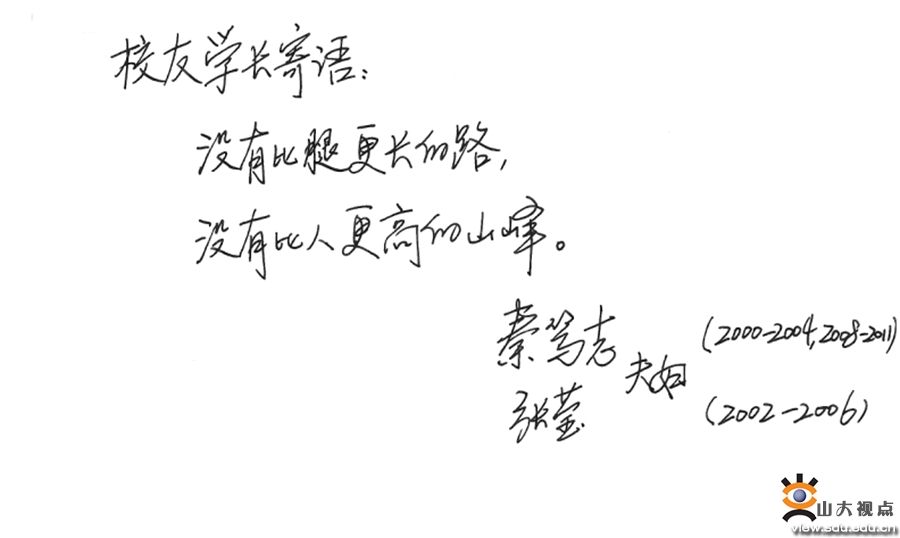 校友学长寄语：
没有比腿更长的路，
没有比人更高的山峰。
秦笃志 夫妇 (2000-2004,2008-2011)
张莹 (2002-2006)
山大视点
view.sdu.edu.cn